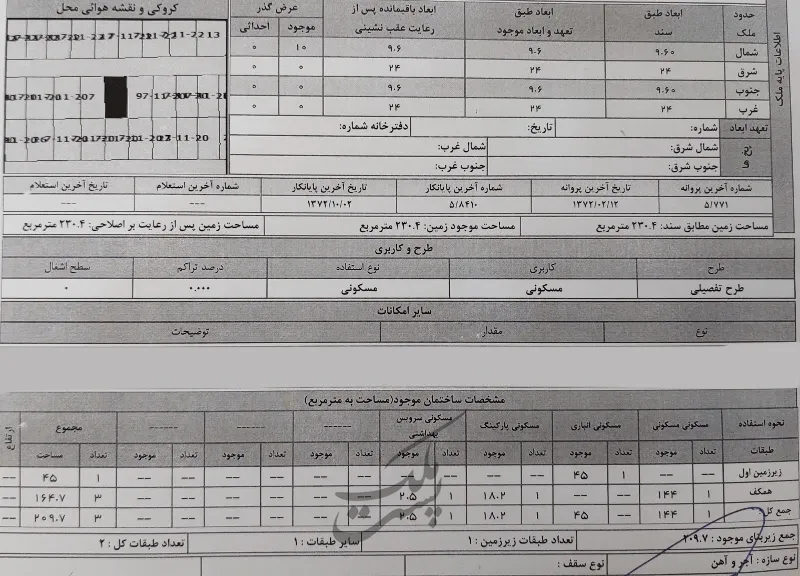 کروکی و نقشه هوائی محل
اطلاعات پایه ملک
حدود ملک | ابعاد طبق سند | ابعاد طبق تعهد و ابعاد موجود | ابعاد باقیمانده پس از رعایت عقب نشینی | عرض گذر موجود | احداثی
شمال | ۹.۶۰ | ۹.۶ | ۹.۶ | ۱۰ | ۰
شرق | ۲۴ | ۲۴ | ۲۴ | ۰ | ۰
جنوب | ۹.۶۰ | ۹.۶ | ۹.۶ | ۰ | ۰
غرب | ۲۴ | ۲۴ | ۲۴ | ۰ | ۰
تعهد ابعاد | شماره: | تاریخ: | دفترخانه شماره:
پخ | شمال شرق: | شمال غرب:
جنوب شرق: | جنوب غرب:
شماره آخرین پروانه | تاریخ آخرین پروانه | شماره آخرین پایانکار | تاریخ آخرین پایانکار | شماره آخرین استعلام | تاریخ آخرین استعلام
۵/۷۷۱ | ۱۳۷۲/۰۲/۱۲ | ۵/۸۴۱۰ | ۱۳۷۲/۱۰/۰۲ | --- | ---
مساحت زمین مطابق سند: ۲۳۰.۴ مترمربع | مساحت موجود زمین: ۲۳۰.۴ مترمربع | مساحت زمین پس از رعایت بر اصلاحی: ۲۳۰.۴ مترمربع
طرح و کاربری
طرح | کاربری | نوع استفاده | درصد تراکم | سطح اشغال
طرح تفصیلی | مسکونی | مسکونی | ۰.۰۰۰ | ۰
سایر امکانات
نوع | مقدار | توضیحات
مشخصات ساختمان موجود(مساحت به مترمربع)
نحوه استفاده | مسکونی مسکونی | مسکونی انباری | مسکونی پارکینگ | مسکونی سرویس بهداشتی | ------ | ------ | ------ | مجموع | ارتفاع
طبقات | تعداد | موجود | تعداد | موجود | تعداد | موجود | تعداد | موجود | تعداد | موجود | تعداد | موجود | تعداد | موجود | تعداد | مساحت
زیرزمین اول | -- | -- | ۱ | ۴۵ | -- | -- | -- | -- | -- | -- | -- | -- | -- | -- | ۱ | ۴۵ | --
همکف | ۱ | ۱۴۴ | -- | -- | ۱ | ۱۸.۲ | ۱ | ۲.۵ | -- | -- | -- | -- | -- | -- | ۳ | ۱۶۴.۷ | --
جمع کل: | ۱ | ۱۴۴ | -- | ۴۵ | ۱ | ۱۸.۲ | ۱ | ۲.۵ | -- | -- | -- | -- | -- | -- | ۳ | ۲۰۹.۷ | --
جمع زیربنای موجود : ۲۰۹.۷ | تعداد طبقات زیرزمین : ۱ | سایر طبقات : ۱ | تعداد طبقات کل : ۲
نوع سازه : آجر و آهن | نوع سقف :